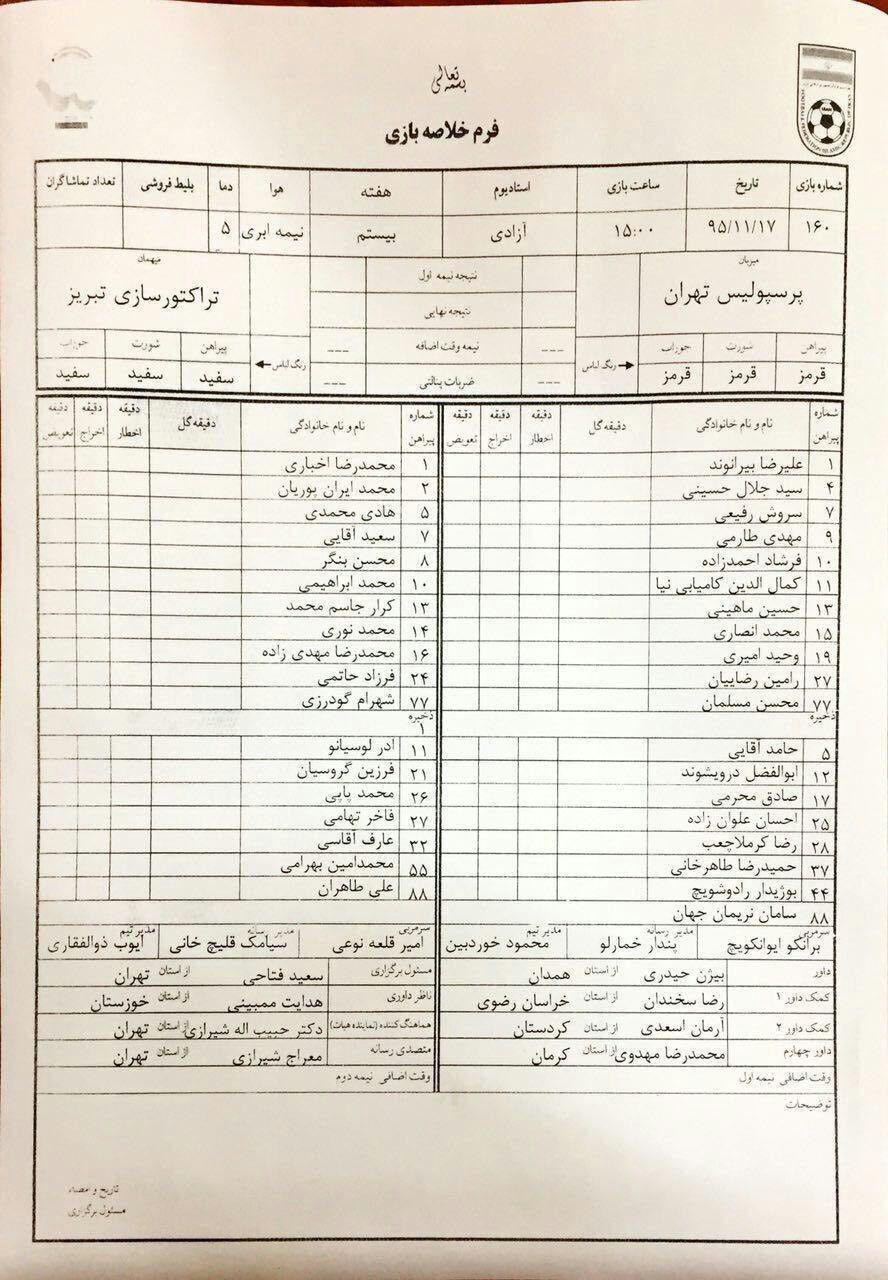 بسمه تعالی
فرم خلاصه بازی
FOOTBALL FEDERATION ISLAMIC REPUBLIC OF IRAN
شماره بازی تاریخ ساعت بازی استادیوم هفته هوا دما بلیط فروشی تعداد تماشاگران
۱۶۰ ۹۵/۱۱/۱۷ ۱۵:۰۰ آزادی بیستم نیمه ابری ۵
میزبان نتیجه نیمه اول میهمان
پرسپولیس تهران تراکتورسازی تبریز
نتیجه نهایی
پیراهن شورت جوراب رنگ لباس --- نیمه وقت اضافه --- رنگ لباس پیراهن شورت جوراب
قرمز قرمز قرمز --- ضربات پنالتی --- سفید سفید سفید
شماره پیراهن نام و نام خانوادگی دقیقه گل دقیقه اخطار دقیقه اخراج دقیقه تعویض شماره پیراهن نام و نام خانوادگی دقیقه گل دقیقه اخطار دقیقه اخراج دقیقه تعویض
۱ علیرضا بیرانوند ۱ محمدرضا اخباری
۴ سید جلال حسینی ۲ محمد ایران پوریان
۷ سروش رفیعی ۵ هادی محمدی
۹ مهدی طارمی ۷ سعید آقایی
۱۰ فرشاد احمدزاده ۸ محسن بنگر
۱۱ کمال الدین کامیابی نیا ۱۰ محمد ابراهیمی
۱۳ حسین ماهینی ۱۳ کرار جاسم محمد
۱۵ محمد انصاری ۱۴ محمد نوری
۱۹ وحید امیری ۱۶ محمدرضا مهدی زاده
۲۷ رامین رضاییان ۲۴ فرزاد حاتمی
۷۷ محسن مسلمان ۷۷ شهرام گودرزی
ذخیره ذخیره
۱
۵ حامد آقایی ۱۱ ادر لوسیانو
۱۲ ابوالفضل درویشوند ۲۱ فرزین گروسیان
۱۷ صادق محرمی ۲۶ محمد پاپی
۲۵ احسان علوان زاده ۲۷ فاخر تهامی
۲۸ رضا کرملاچعب ۳۲ عارف آقاسی
۳۷ حمیدرضا طاهرخانی ۵۵ محمدامین بهرامی
۴۴ بوژیدار رادوشویچ ۸۸ علی طاهران
۸۸ سامان نریمان جهان
سرمربی مدیر رسانه مدیر تیم سرمربی مدیر رسانه مدیر تیم
برانکو ایوانکویچ پندار خمارلو محمود خوردبین امیر قلعه نوعی سیامک قلیچ خانی ایوب ذوالفقاری
داور بیژن حیدری از استان همدان مسئول برگزاری سعید فتاحی از استان تهران
کمک داور ۱ رضا سخندان از استان خراسان رضوی ناظر داوری هدایت ممبینی از استان خوزستان
کمک داور ۲ آرمان اسعدی از استان کردستان هماهنگ کننده (نماینده هیات) دکتر حبیب اله شیرازی از استان تهران
داور چهارم محمدرضا مهدوی از استان کرمان متصدی رسانه معراج شیرازی از استان تهران
وقت اضافی نیمه اول وقت اضافی نیمه دوم
توضیحات
تاریخ و امضاء
مسئول برگزاری